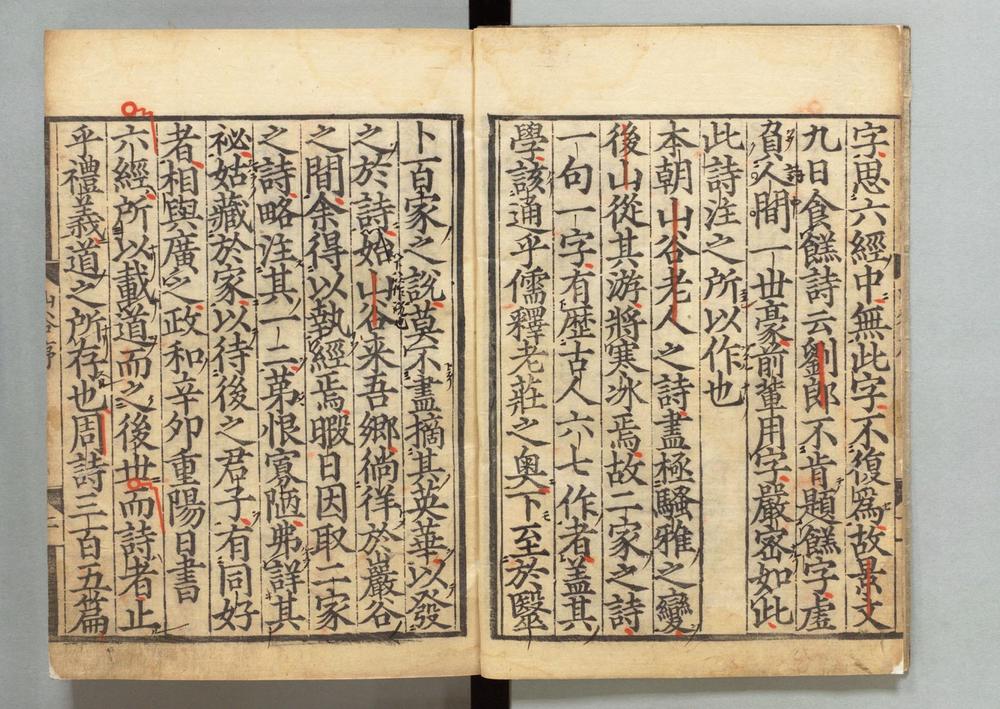 字思六經中無此字不復爲故景文
九日食餻詩云劉郎不肯題餻字虛
負人間一世豪前輩用字嚴密如此
此詩注之所以作也
本朝山谷老人之詩盡極騷雅之變
後山從其游將寒冰焉故二家之詩
一句一字有歷古人六七作者蓋其
學該通乎儒釋老莊之奥下至於醫
卜百家之說莫不盡摘其英華以發
之於詩始山谷来吾鄉徜徉於巖谷
之間余得以執經焉暇日因取二家
之詩略注其一二苐恨寡陋弗詳其
祕姑藏於家以待後之君子有同好
者相與廣之政和辛卯重陽日書
六經所以載道而之後世而詩者止
乎禮義道之所存也周詩三百五篇